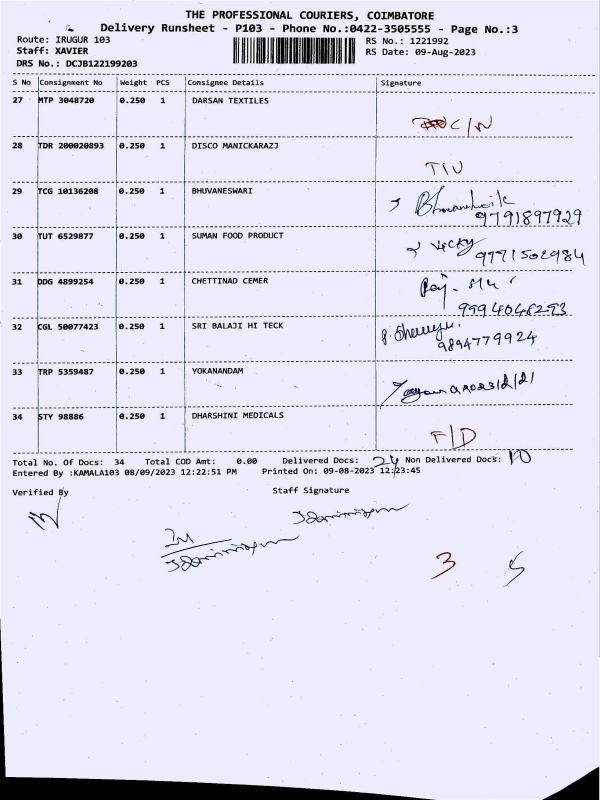 THE PROFESSIONAL COURIERS, COIMBATORE
Delivery Runsheet - P103 - Phone No.:0422-3505555 - Page No.:3
Route: IRUGUR 103 RS No.: 1221992
Staff: XAVIER RS Date: 09-Aug-2023
DRS No.: DCJB122199203
S No Consignment No Weight PCS Consignee Details Signature
27 MTP 3048720 0.250 1 DARSAN TEXTILES
C/N
28 TDR 200020893 0.250 1 DISCO MANICKARAZJ
29 TCG 10136208 0.250 1 BHUVANESWARI
9791897929
30 TUT 6529877 0.250 1 SUMAN FOOD PRODUCT
Vicky
9971502984
31 DDG 4899254 0.250 1 CHETTINAD CEMER
9994046293
32 CGL 50077423 0.250 1 SRI BALAJI HI TECK
9894779924
33 TRP 5359487 0.250 1 YOKANANDAM
34 STY 98886 0.250 1 DHARSHINI MEDICALS
F/D
Total No. Of Docs: 34 Total COD Amt: 0.00 Delivered Docs: 24 Non Delivered Docs: 10
Entered By :KAMALA103 08/09/2023 12:22:51 PM Printed On: 09-08-2023 12:23:45
Verified By Staff Signature
3 5